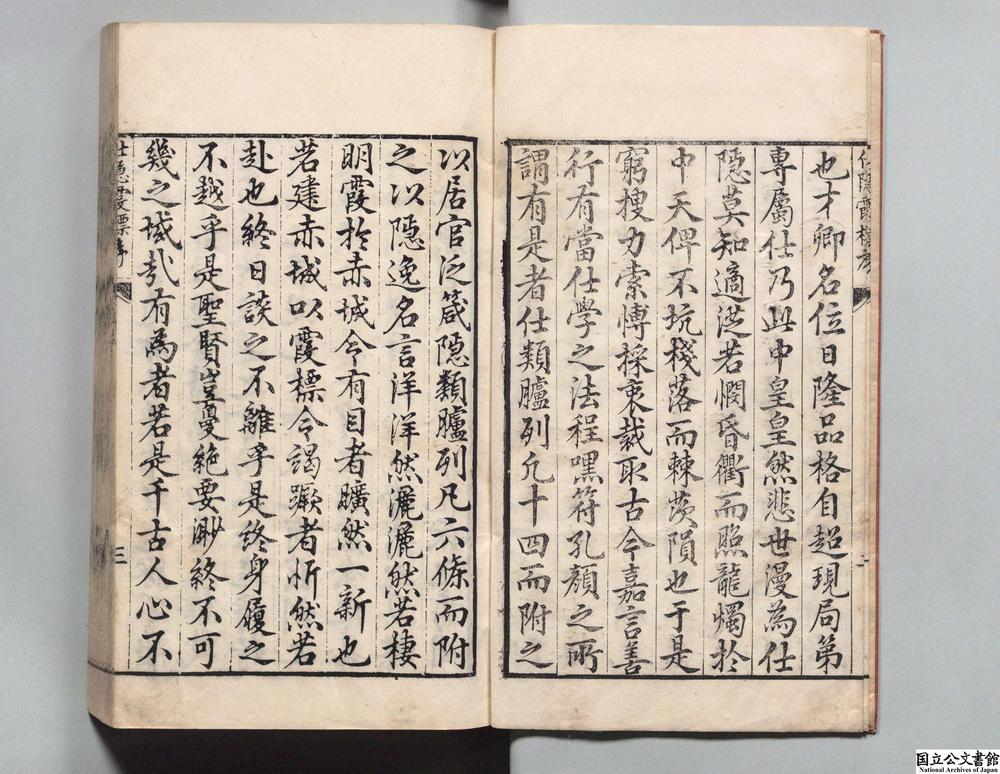 也才卿名位日隆品格自超現局第
專屬仕乃此中皇皇然悲世漫為仕
隱莫知適従若憫昏衢而照龍燭於
中天俾不坑棧落而棘茨隕也于是
窮搜力索博採衷裁取古今嘉言善
行有當仕學之法程嘿符孔顏之所
謂有是者仕類臚列凢十四而附之
二
以居官泛箴隱類臚列凡六條而附
之以隱逸名言洋洋然灑灑然若棲
明霞於赤城今有目者曠然一新也
若建赤城以霞標令謁蹶者忻然若
赴也終日談之不離乎是終身履之
不越乎是聖賢豈敻絶要渺終不可
幾之域哉有為者若是千古人心不
仕隱霞標序
三
国立公文書館
National Archives of Japan